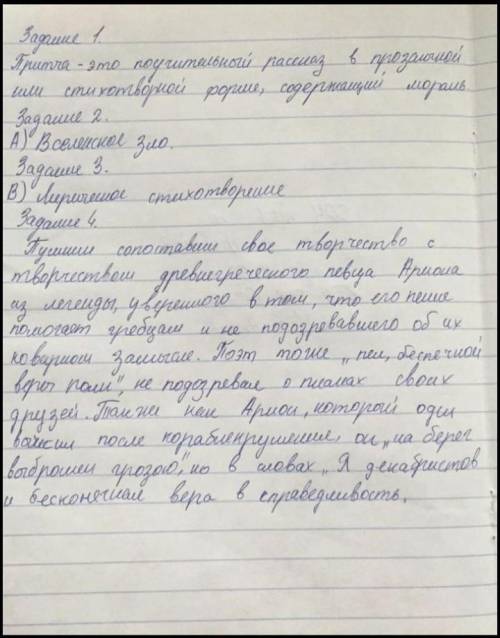 Задание 1.
Притча - это поучительный рассказ в прозаичной
или стихотворной форме, содержащий мораль
Задание 2.
А) Вселенское зло.
Задание 3.
В) Лиричесное стихотворение
Задание 4.
Пушкин сопоставил свое творчество с
творчеством древнегреческого певца Ариона
из легенды, уверенного в том, что его пение
помогает гребцам и не подозревавшего об их
коварном замысле. Поэт тоже „пел, беспечной
веры полн", не подозревая о планах своих
друзей. Также как Арион, который один
выжил после кораблекрушения, он „на берег
выброшен грозою", но в словах „Я декабристов
и бесконечная вера в справедливость.